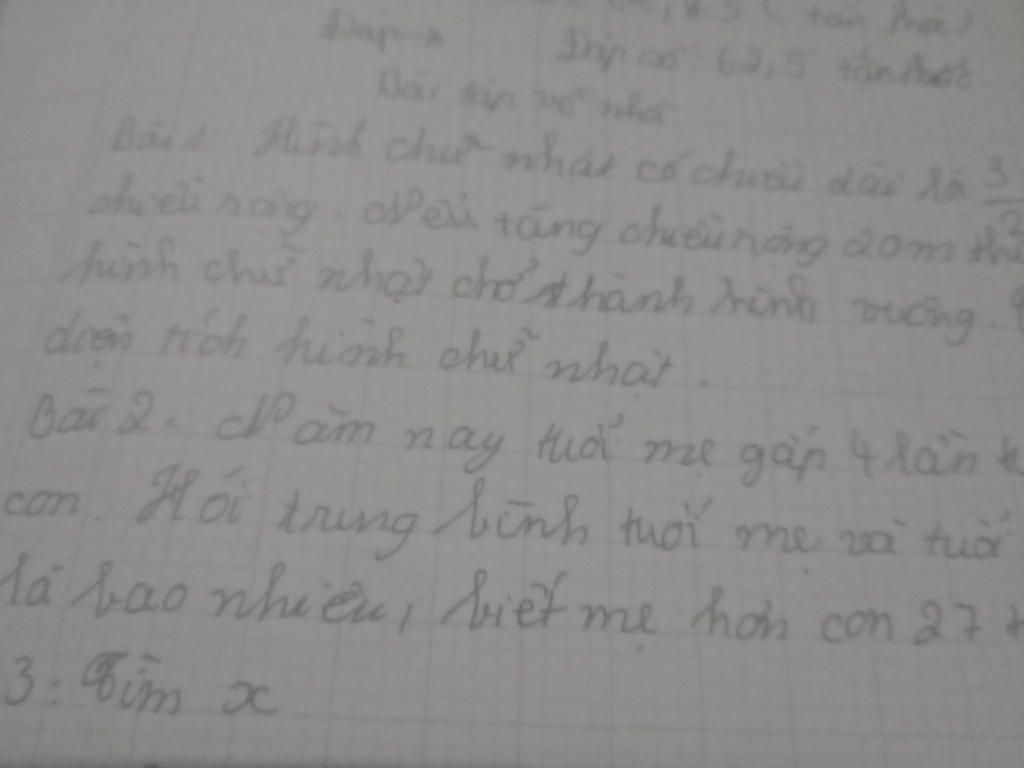 (tấn thóc)
Đáp số: 62,5 tấn thóc
Bài tập về nhà
Bài 1: Hình chữ nhật có chiều dài là 3/2
chiều rộng. Nếu tăng chiều rộng 20m thì
hình chữ nhật chở thành hình vuông.
diện tích hình chữ nhật.
Bài 2. Năm nay tuổi mẹ gấp 4 lần
con. Hỏi trung bình tuổi mẹ và tuổi
là bao nhiêu, biết mẹ hơn con 27
3: Tìm x